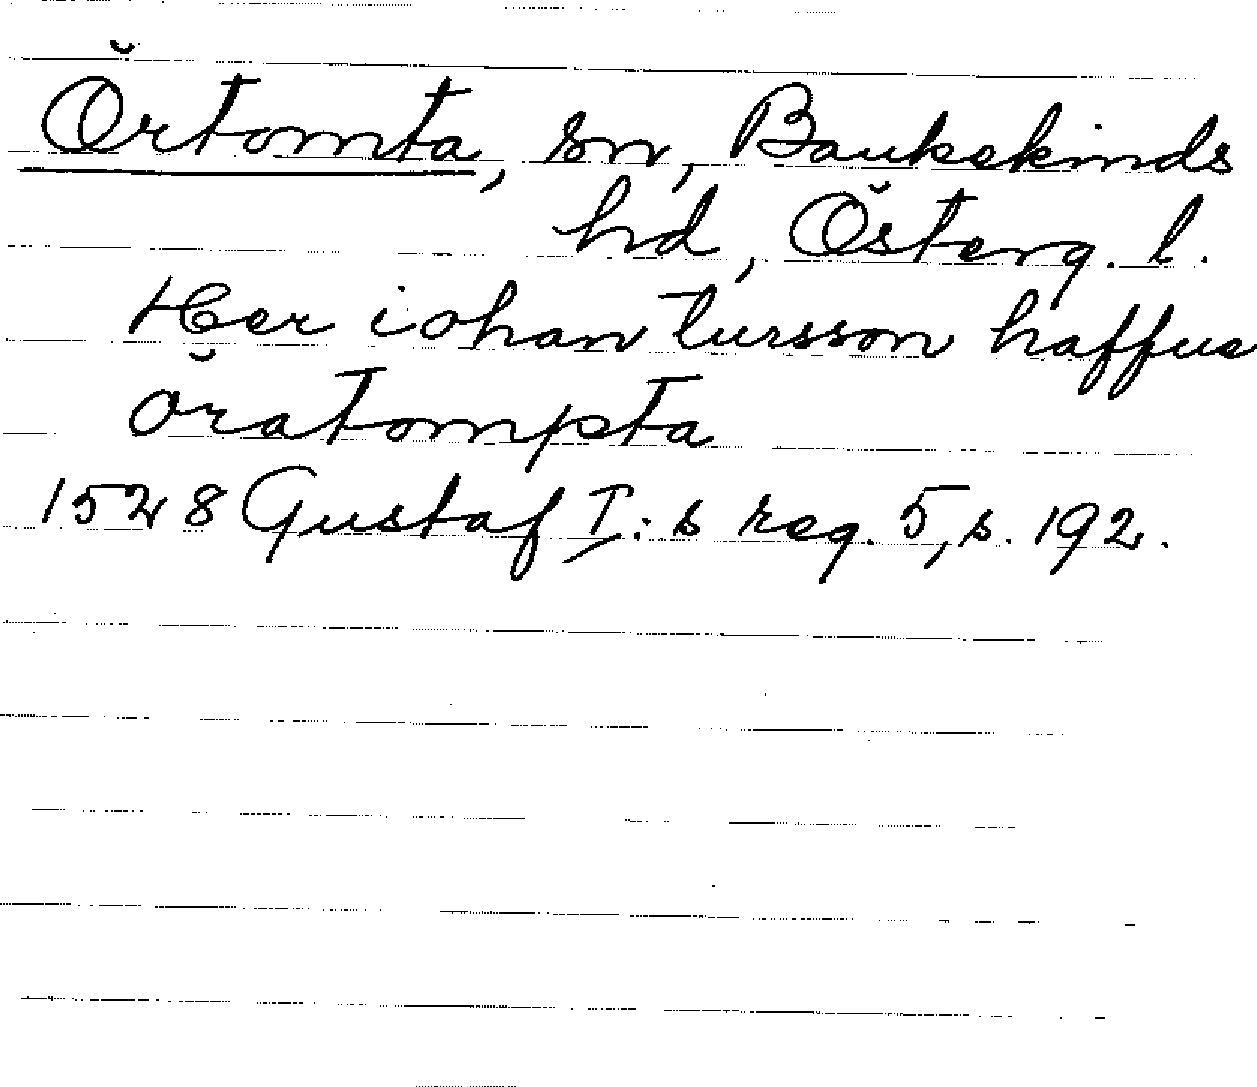 Örtomta, sn, Bankekinds
hd, Österg. l.
Her iohan tursson haffue
Öratompta
1528 Gustaf I:s reg. 5, s. 192.